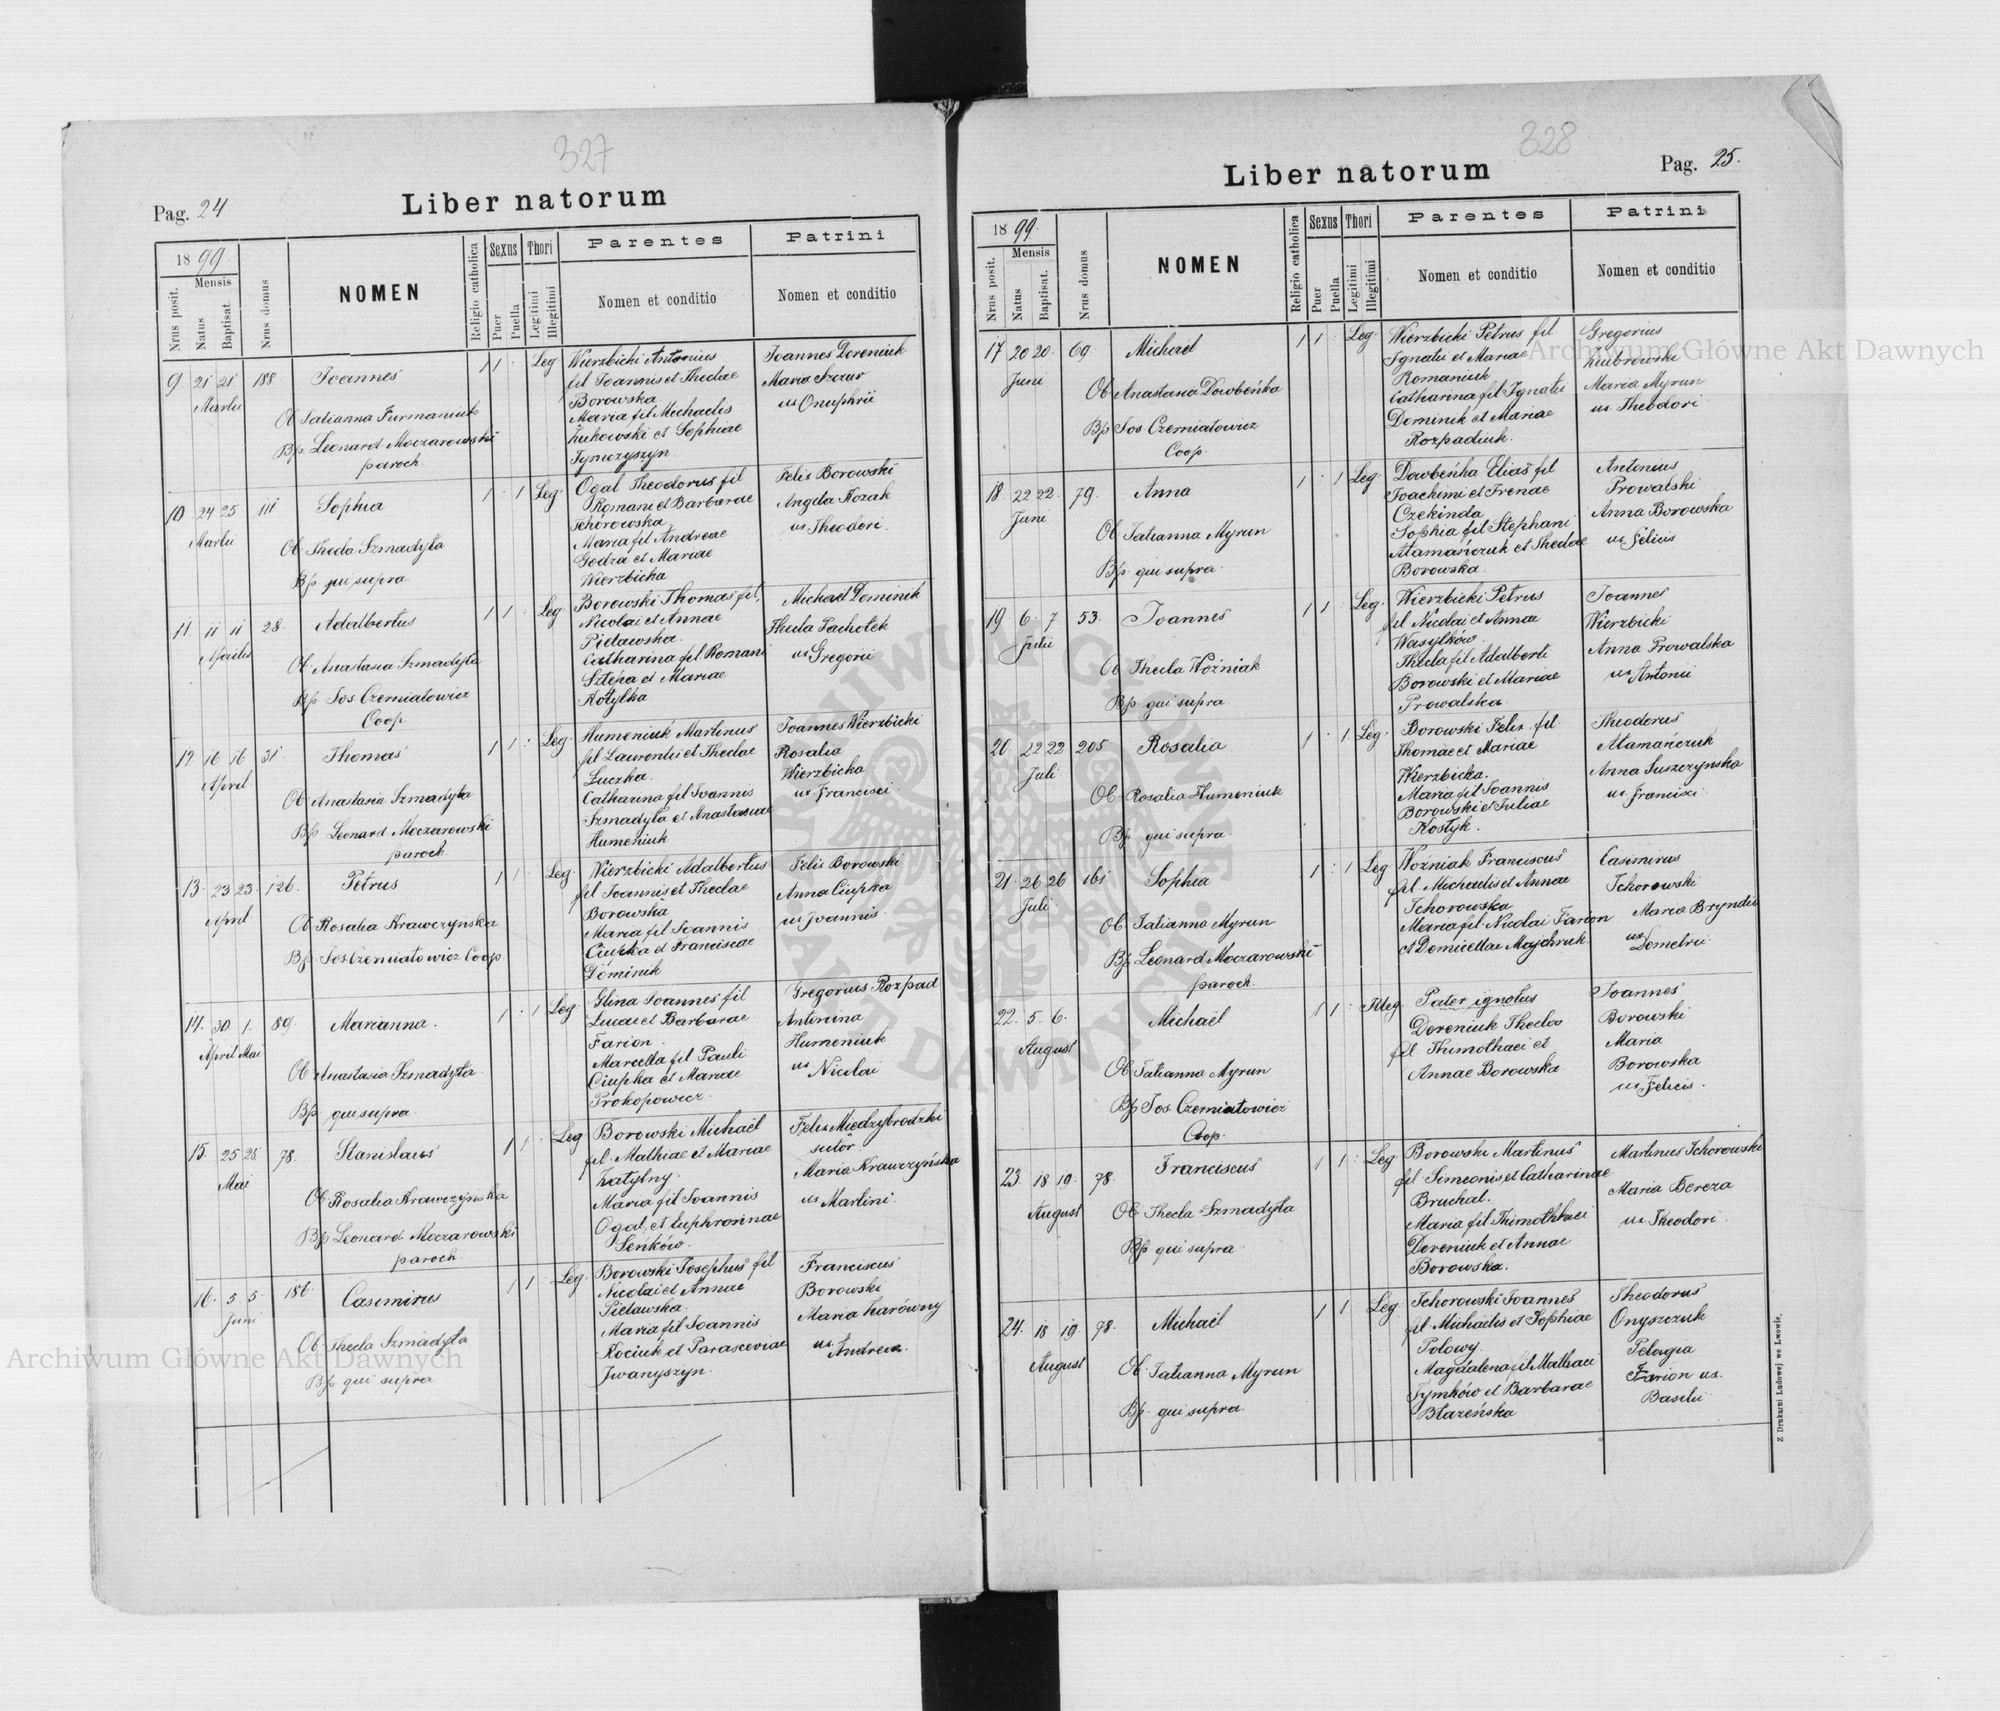 327
Pag. 24
Liber natorum
1899.
Mensis
Nrus posit.
Natus
Baptisat.
Nrus domus
NOMEN
Religio catholica
Sexus
Puer
Puella
Thori
Legitimi
Illegitimi
Parentes
Nomen et conditio
Patrini
Nomen et conditio
9 21 21 188 Joannes 1 1 Leg
Martii
Ob Tatianna Furmaniuk
Bp. Leonard Moczarowski
paroch.
Wierzbicki Antonius
fil Joannis et Theclae
Borowska
Maria fil Michaelis
Żukowski et Sophiae
Tymczyszyn.
Joannes Dereniuk
Maria Szczur
ux Onuphrii
10 24 25 111 Sophia 1 1 Leg.
Martii
Ob Thecla Szmadyła
Bp qui supra
Ogal Theodorus fil
Romani et Barbarae
Tchorowska
Maria fil Andreae
Godza et Mariae
Wierzbicka
Felix Borowski
Angela Kozak
ux Theodori.
11. 11 11 28. Adalbertus 1 1 Leg.
Aprilis
Ob Anastasia Szmadyła
Bp Jos Czerniatowicz
Coop.
Borowski Thomas fil,
Nicolai et Annae
Pielawska.
Catharina fil Romani
Sztepa et Mariae
Kotylka
Michael Dominik
Thecla Pachołek
ux Gregorii
12 16 16 31. Thomas 1 1 Leg.
April
Ob Anastasia Szmadyła
Bp Leonard Moczarowski
paroch.
Humeniuk Martinus
fil Laurentii et Theclae
Łuczka.
Catharina fil Joannis
Szmadyła et Anastasiae
Humeniuk
Joannes Wierzbicki
Rosalia
Wierzbicka
ux Francisci
13. 23 23. 126. Petrus 1 1 Leg.
April
Ob Rosalia Krawczyńska
Bp Jos Czerniatowicz Coop
Wierzbicki Adalbertus
fil Joannis et Theclae
Borowska
Maria fil Joannis
Ciupka et Franciscae
Dominik
Felix Borowski
Anna Ciupka
ux Joannis.
14. 30 1. 89. Marianna. 1 1 Leg.
April Mai
Ob Anastasia Szmadyła
Bp qui supra
Glina Joannes fil
Lucae et Barbarae
Farion.
Marcella fil Pauli
Ciupka et Mariae
Prokopowicz.
Gregorius Rozpad
Antonina
Humeniuk
ux Nicolai
15. 25 25 78. Stanislaus 1 1 Leg
Mai
Ob Rosalia Krawczyńska
Bp Leonard Moczarowski
paroch.
Borowski Michaël
fil. Mathiae et Mariae
Zatylny.
Maria fil Joannis
Ogal, et Euphrosinae
Seńków.
Felix Miedzybrodzki
sutor
Maria Krawczyńska
ux Martini.
16. 5. 5. 186. Casimirus 1 1 Leg.
Juni
Ob Thecla Szmadyła
Bp. qui supra
Borowski Josephus fil
Nicolai et Annae
Pielawska.
Maria fil Joannis
Kociuk et Parasceviae
Iwanyszyn.
Franciscus
Borowski
Maria
ux. Andreae.
328
Liber natorum
Pag. 25.
1899.
Mensis
Nrus posit.
Natus
Baptisat.
Nrus domus
NOMEN
Religio catholica
Sexus
Puer
Puella
Thori
Legitimi
Illegitimi
Parentes
Nomen et conditio
Patrini
Nomen et conditio
17 20 20. 69. Michael 1 1 Leg.
Juni
Ob Anastasia Dowbeńka
Bp Jos. Czerniatowicz
Coop.
Wierzbicki Petrus fil
Ignatii et Mariae
Romaniuk
Catharina fil Ignatii
Dominik et Mariae
Rozpadiuk.
Gregorius
Maria Myrun
ux. Theodori
18. 22 22. 79. Anna 1 1 Leg.
Juni
Ob Tatianna Myrun
Bp. qui supra.
Dowbeńka Elias fil
Joachimi et Irenae
Czekinda
Sophia fil Stephani
Atamańczuk et Theclae
Borowska.
Antonius
Prowalski
Anna Borowska
ux Felicis
19. 6. 7 53. Joannes 1 1 Leg.
Julii
Ob Thecla Woźniak
Bp. qui supra
Wierzbicki Petrus
fil Nicolai et Annae
Wasylków
Thecla fil Adalberti
Borowski et Mariae
Prowalska.
Joannes
Wierzbicki
Anna Prowalska
ux Antonii
20. 22 22 205 Rosalia 1 1 Leg.
Juli
Ob Rosalia Humeniuk
Bp. qui supra
Borowski Felix fil.
Thomae et Mariae
Wierzbicka.
Maria fil Joannis
Borowski et Juliae
Kostyk.
Theodorus
Atamańczuk
Anna Suszczynska
ux. Francisci
21. 26 26 161 Sophia 1 1 Leg
Juli
Ob Tatianna Myrun
Bp Leonard Moczarowski
paroch.
Woźniak Franciscus
fil Michaelis et Annae
Tchorowska
Maria fil Nicolai Farion
et Domicellae Majchruk
Casimirus
Tchorowski
Maria Bryndii
ux Demetrii
22. 5. 6. Michaël 1 1 Illeg.
August
Ob Tatianna Myrun
Bp Jos. Czerniatowicz
Coop.
Pater ignotus
Dereniuk Thecla
fil. Thimothaei et
Annae Borowska
Joannes
Borowski
Maria
Borowska
ux Felicis.
23. 18 19. 78. Franciscus 1 1 Leg.
August
Ob Thecla Szmadyła
Bp qui supra
Borowski Martinus
fil Simeonis, et Catharinae
Bruchal.
Maria fil Thimothaei
Dereniuk et Annae
Borowska.
Martinus Tchorowski
Maria Bereza
ux Theodori
24. 18 19. 78. Michaël 1 1 Leg
August
Ob Tatianna Myrun
Bp. qui supra
Tchorowski Joannes
fil Michaelis et Sophiae
Polowy.
Magdalena fil Mathaei
Tymków et Barbarae
Błazeńska
Theodorus
Onyszczuk
Pelagia
Farion ux.
Basilii
Z Drukarni Ludowej we Lwowie.
Archiwum Główne Akt Dawnych
Archiwum Główne Akt Dawnych
ARCHIWUM GŁÓWNE AKT DAWNYCH